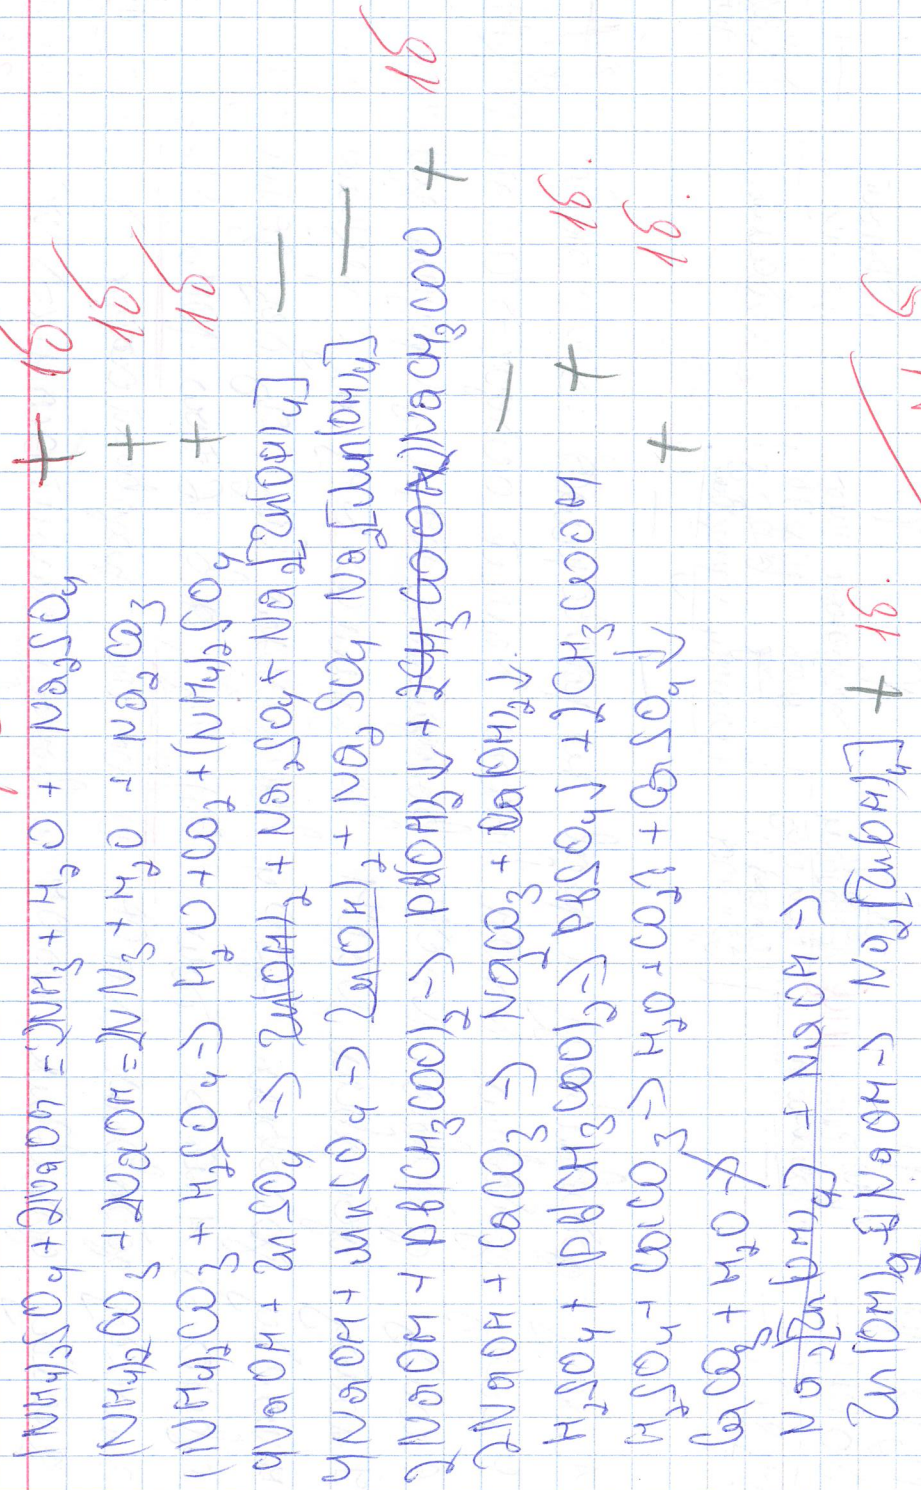 (NH₄)₂SO₄ + 2NaOH = 2NH₃ + H₂O + Na₂SO₄ + 1б
(NH₄)₂CO₃ + 2NaOH = 2NH₃ + H₂O + Na₂CO₃ + 1б
(NH₄)₂CO₃ + H₂SO₄ -> H₂O + CO₂ + (NH₄)₂SO₄ + 1б
4NaOH + ZnSO₄ -> Zn(OH)₂ + Na₂SO₄ + Na₂[Zn(OH)₄] —
4NaOH + MnSO₄ -> Zn(OH)₂ + Na₂SO₄ Na₂[Mn(OH)₄] —
2NaOH + Pb(CH₃COO)₂ -> Pb(OH)₂↓ + 2CH₃COOH)NaCH₃COO + 1б
2NaOH + CaCO₃ -> Na₂CO₃ + Ca(OH)₂↓ —
H₂SO₄ + Pb(CH₃COO)₂ -> PbSO₄↓ + 2CH₃COOH + 1б.
H₂SO₄ + CaCO₃ -> H₂O + CO₂↑ + CaSO₄↓ + 1б.
CaCO₃ + H₂O ->
Na₂[Zn(OH)₄] + NaOH ->
Zn(OH)₂ + 2NaOH -> Na₂[Zn(OH)₄] + 1б.